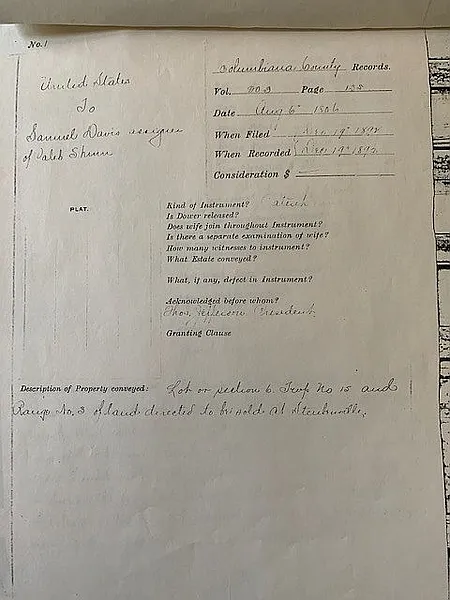 No. 1
United States
To
Samuel Davis assignee
of Caleb Shinn
Columbiana County Records.
Vol. Page
Date Aug 6" 1806
When Filed 19" 189
When Recorded 19" 189
Consideration $
PLAT.
Kind of Instrument? Patent
Is Dower released?
Does wife join throughout Instrument?
Is there a separate examination of wife?
How many witnesses to instrument?
What Estate conveyed?
What, if any, defect in Instrument?
Acknowledged before whom?
Thos. Jefferson President
Granting Clause
Description of Property conveyed: Lot or section 6. Twp No 15 and
Range No. 3 of land directed to be sold at Steubenville.